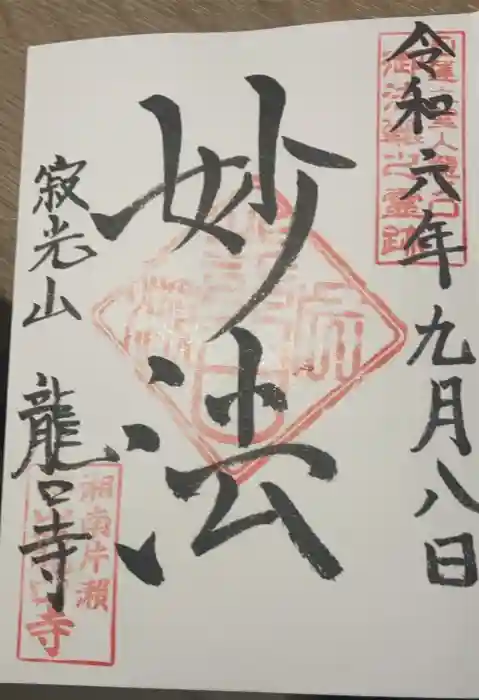 令和六年九月八日
御法難之霊跡
妙法
寂光山
龍口寺
湘南片瀬